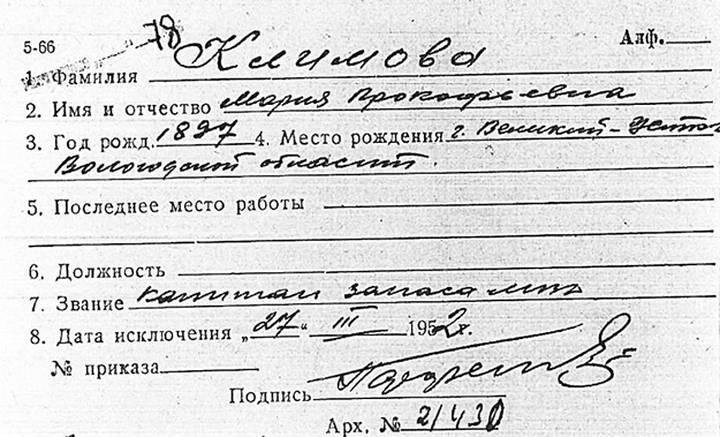 78
5-66 Алф.
1. Фамилия Климова
2. Имя и отчество Мария Прокофьевна
3. Год рожд. 1897 4. Место рождения г. Великий-Устюг
Вологодской области.
5. Последнее место работы
6. Должность
7. Звание капитан запаса
8. Дата исключения „27“ III 1952г.
№ приказа
Подпись
Арх. №